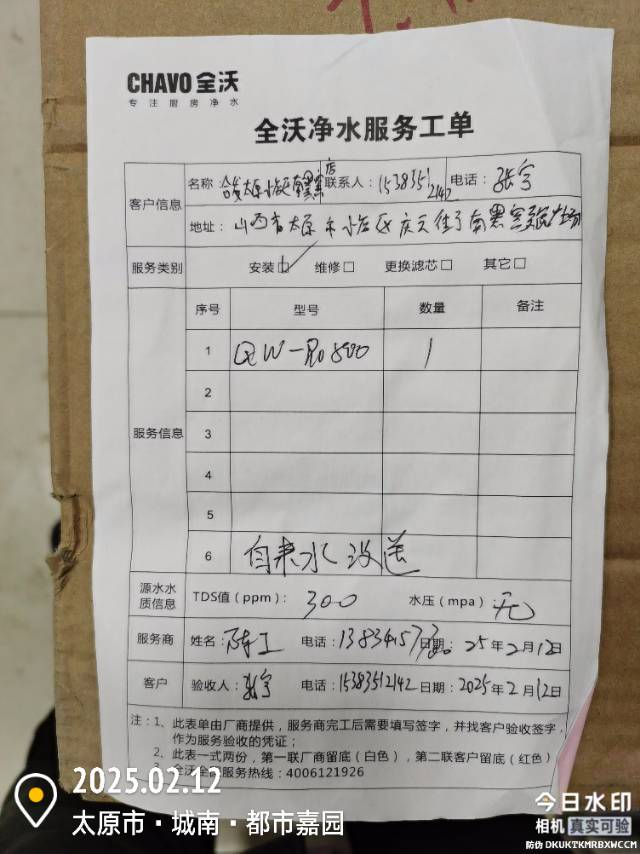 CHAVO 全沃
专注厨房净水
全沃净水服务工单
客户信息
名称 店 联系人：15383512142 电话：张宇
地址：山西省太原市小店区
服务类别 安装☑ 维修□ 更换滤芯□ 其它□
服务信息
序号 型号 数量 备注
1 QW-Ro800 1
2
3
4
5
6 自来水没送
源水水质信息 TDS值（ppm）：300 水压（mpa）：无
服务商 姓名：陈工 电话： 日期：25年2月12日
客户 验收人：张宇 电话：15383512142 日期：2025年2月12日
注：1、此表单由厂商提供，服务商完工后需要填写签字，并找客户验收签字，
作为服务验收的凭证；
2、此表一式两份，第一联厂商留底（白色），第二联客户留底（红色）
服务热线：4006121926
2025.02.12
太原市·城南·都市嘉园
今日水印
相机 真实可验
防伪 DKUKTKMRBXWCCM